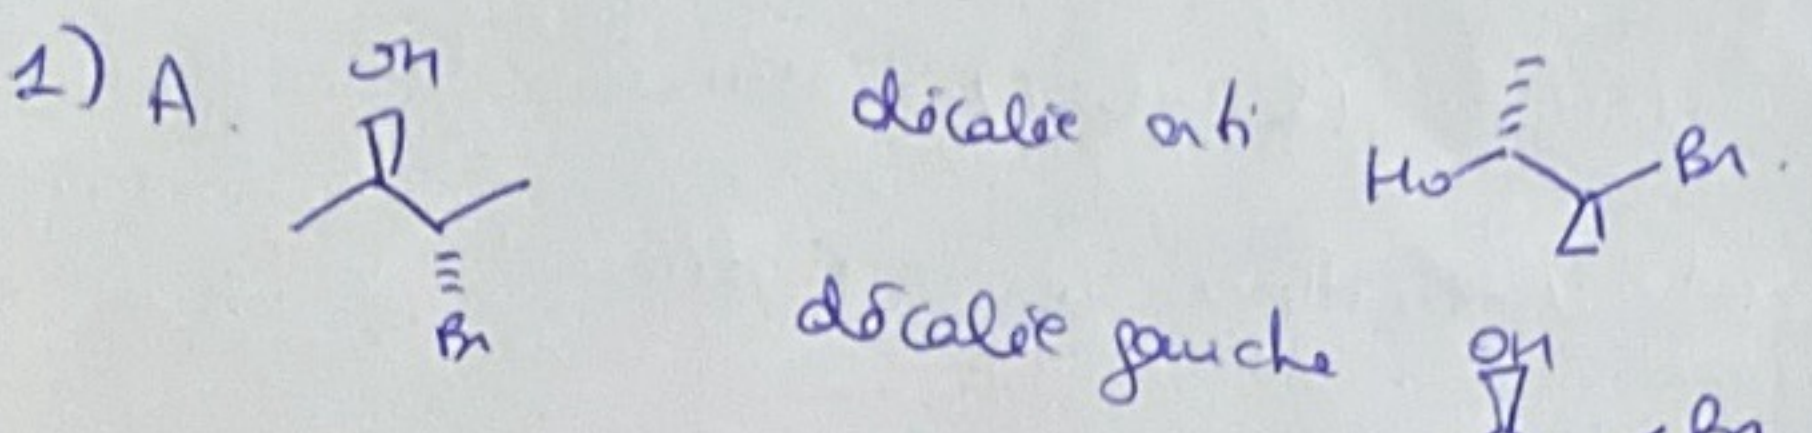 1) A.
OH
Br
décalée anti
HO Br.
décalée gauche
OH
Br